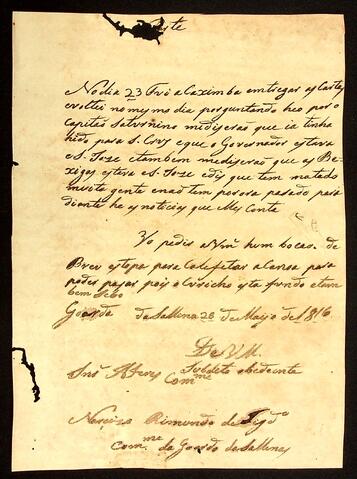 No dia 23 Fui a Caximba emtregar as Cartas
e voltei no mesmo dia porguntando heo por o
Capitaõ Saturnino mediseraõ que ia tinha
hido para S. Cruz e que o Governador estava
e S. Joze etambem mediseraõ que as Be-
xigas estava e S. Joze e dis que tem matado
muita gente enaõ tem pesoa pasado para
diante he as noticias que Mes Conta
Vo pedir a Vm hum bocao de
Breu estopa para Calafetar a Canoa para
poder pasar pois o está fundo etam
bem Sebo
Goarda da Sallina 26 de Mayo de 1816
De V. M.
Snõr Alferes Comme Subdito obediente
Narcizo Raimundo de
Comme da Goarda da Sallina